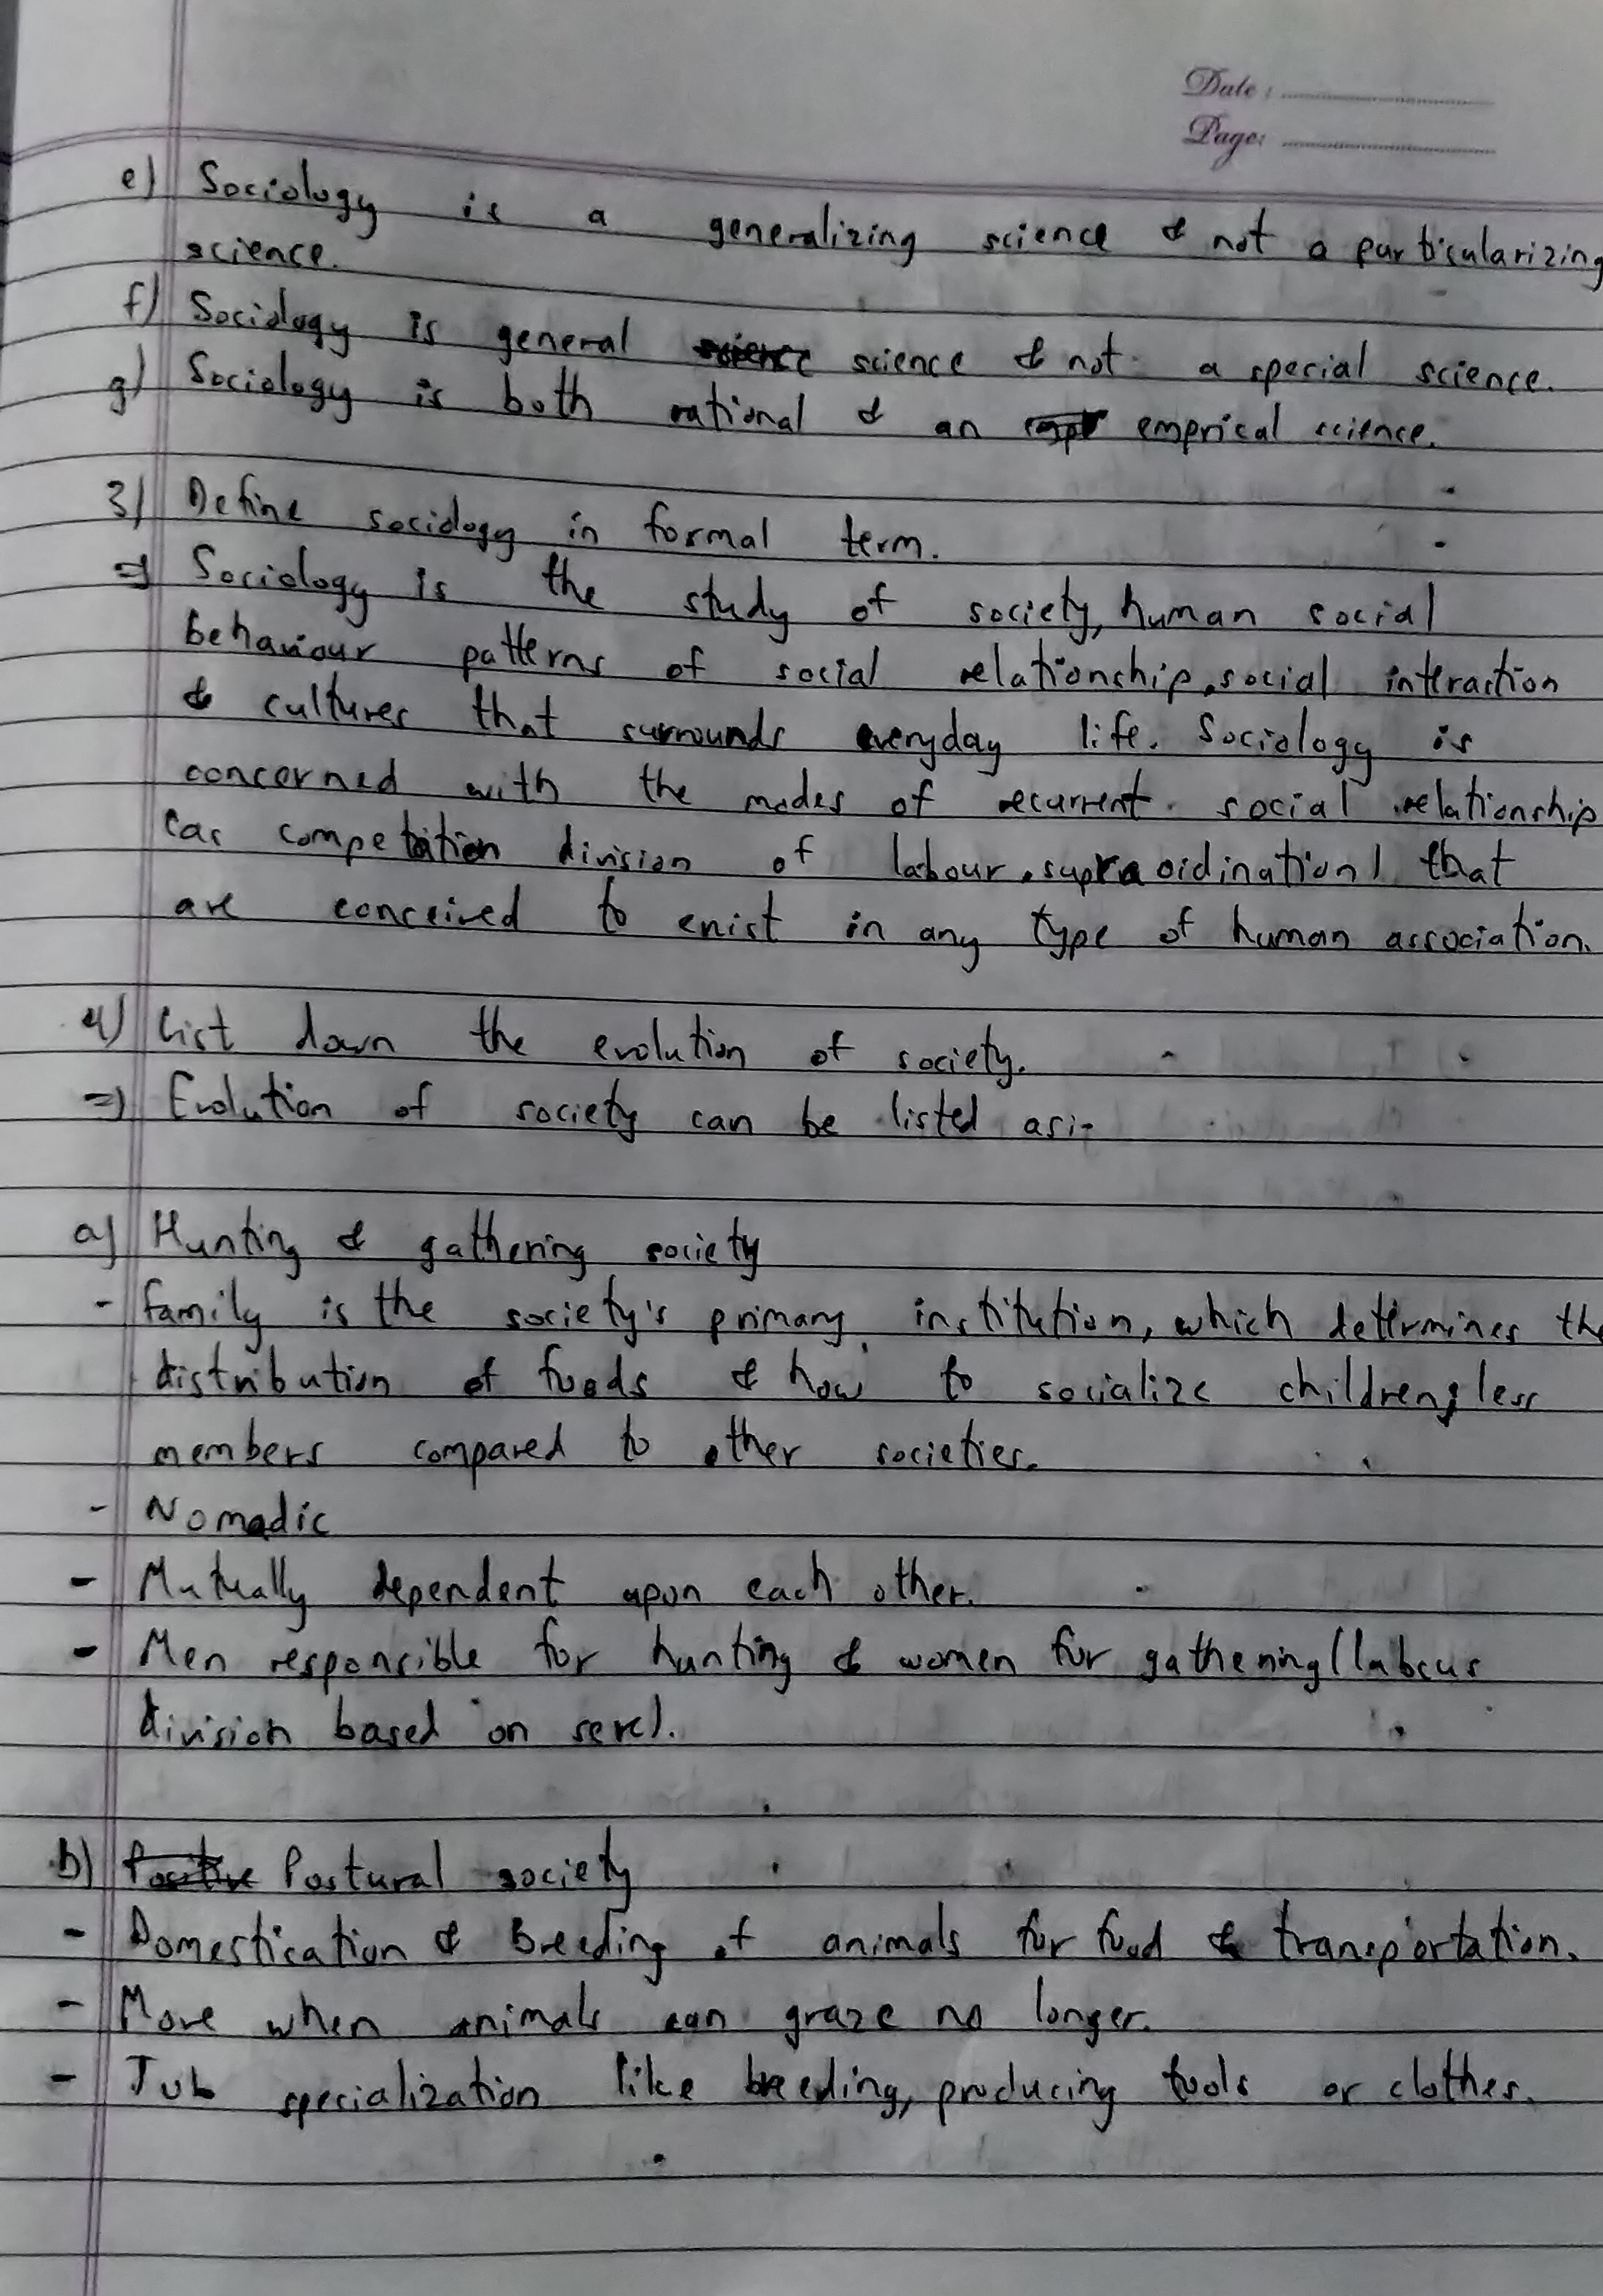 Date :
Page:
e) Sociology is a generalizing science & not a particularizing
science.
f) Sociology is general science science & not a special science.
g) Sociology is both rational & an emprical science.
3) Define sociology in formal term.
=) Sociology is the study of society, human social
behaviour patterns of social relationship, social interaction
& cultures that surrounds everyday life. Sociology is
concerned with the modes of recurrent social relationship
(as competation division of labour, supra oidination) that
are conceived to enist in any type of human association.
4) List down the evolution of society.
=) Evolution of society can be listed as:-
a) Hunting & gathering society
- family is the society's primary institution, which determines the
distribution of foods & how to socialize children; less
members compared to other societies.
- Nomadic
- Mutually dependent upon each other.
- Men responsible for hunting & women for gathening (labour
division based on sex).
b) Positive Postural society
- Domestication & breeding of animals for food & transportation.
- Move when animals can graze no longer.
- Job specialization like breeding, producing tools or clothes.